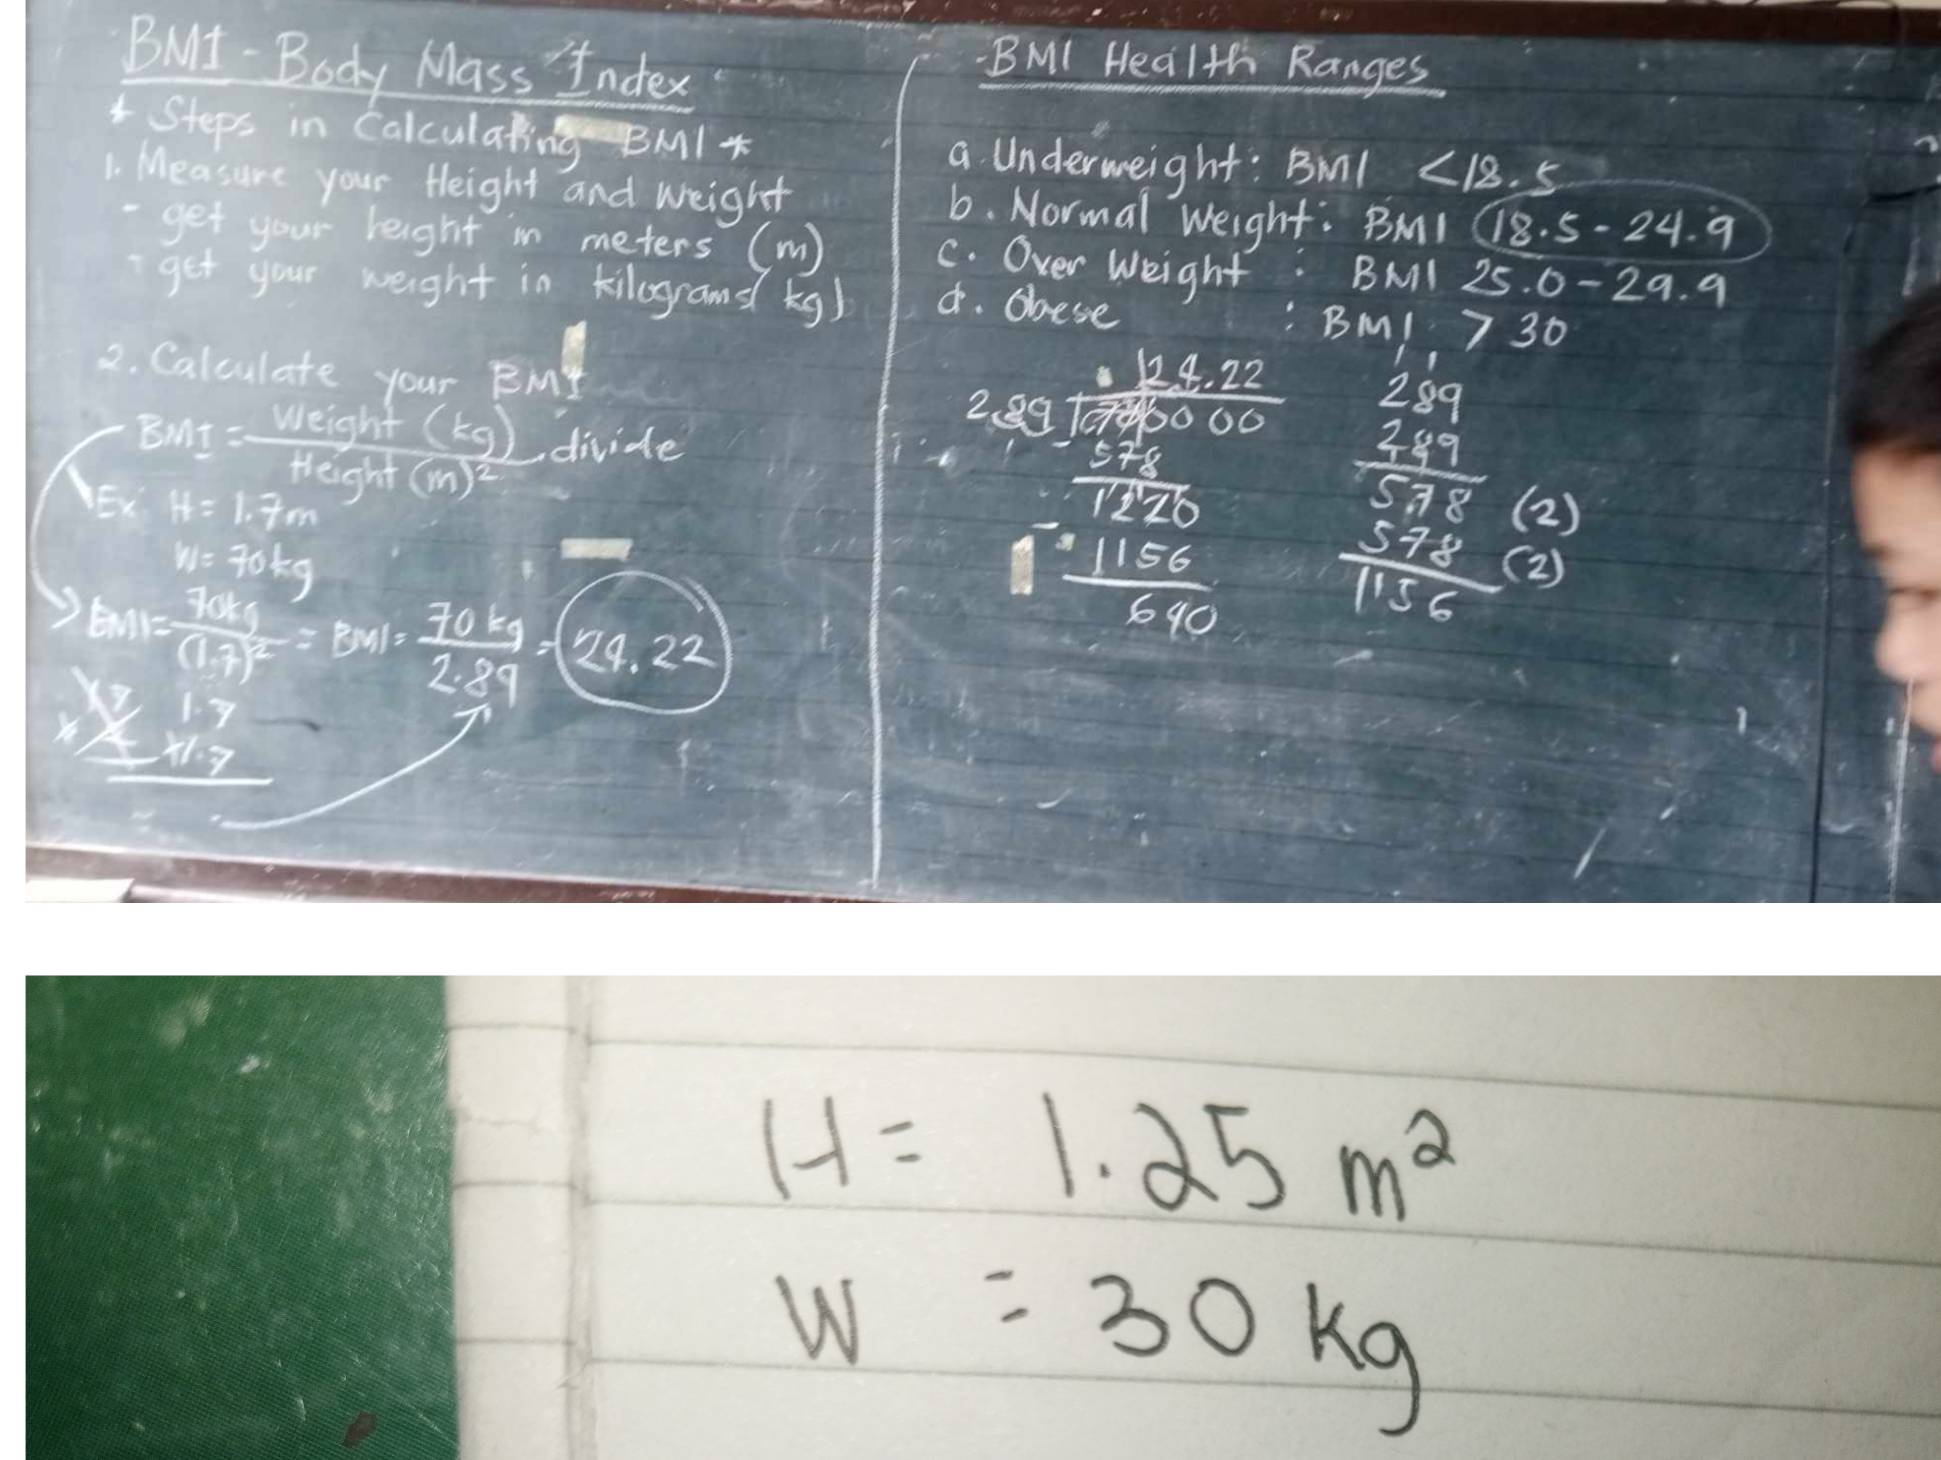 BMI - Body Mass Index
* Steps in Calculating BMI *
1. Measure your Height and Weight
- get your height in meters (m)
- get your weight in kilograms (kg)
2. Calculate your BMI
BMI = Weight (kg) divide
Height (m)²
Ex: H = 1.7m
W = 70kg
BMI = 70kg = BMI = 70 kg = 24.22
(1.7)² 2.89
1.7
x1.7
BMI Health Ranges
a. Underweight: BMI <18.5
b. Normal Weight: BMI 18.5 - 24.9
c. Over Weight : BMI 25.0 - 29.9
d. Obese : BMI > 30
24.22
289
578
1220
- 1156
640
1 1
289
289
578 (2)
578 (2)
1156
H = 1.25 m²
W = 30 kg